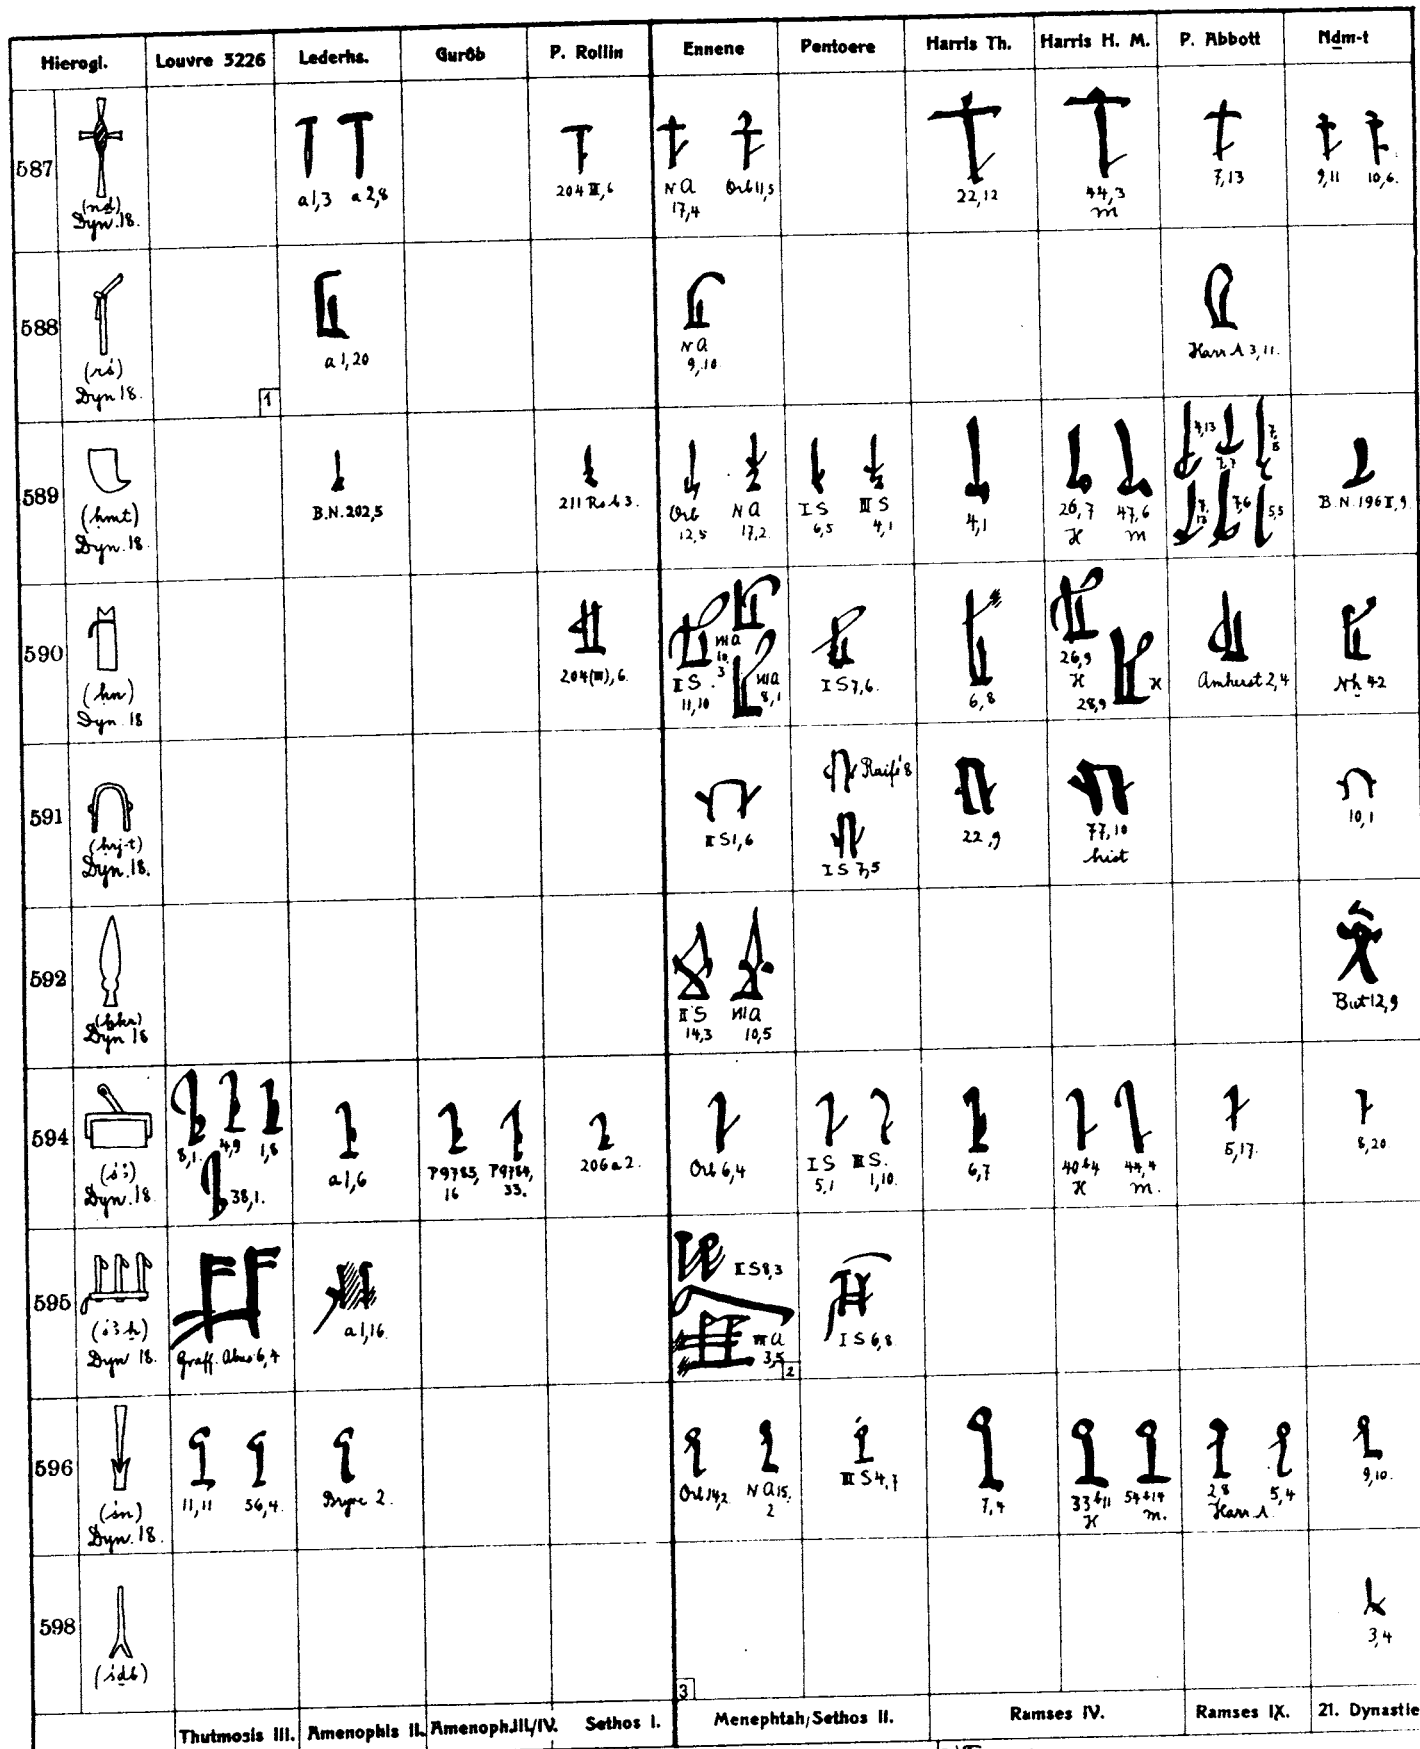 Hierogl. Louvre 3226 Lederhs. Gurôb P. Rollin Ennene Pentoere Harris Th. Harris H. M. P. Abbott Nḏm-t
587
(nḏ)
Dyn. 18.
a 1,3 a 2,8
204 III, 6
NA 17,4
Orb 11,5
22,12
44,3 M
7,13
9,11 10,6.
588
(rś)
Dyn 18.
1
a 1,20
NA 9,10
Harr A 3,11.
589
(ḥmt)
Dyn. 18
B.N. 202,5
211 Rs b 3.
Orb 12,5
NA 17,2.
I S 6,5
III S 4,1
4,1
26,7 H
47,6 M
4,13
7,6 5,5
B.N. 196 I, 9.
590
(ḥn)
Dyn. 18
204(III), 6.
II S. 11,10
10,3
8,1
I S 7,6.
6,8
26,9 H
28,9 H
Amherst 2,4
Nḫ 42
591
Dyn. 18.
II S 1,6
Raifé 8
I S 7,5
22,9
77,10 hist
10,1
592
(ẖkr)
Dyn 18
II S 14,3
10,5
But 12,9
594
Dyn. 18
8,1. 4,9 1,8
38,1.
a 1,6
P 9785, 16
P 9784, 33.
206 a 2.
Orb 6,4
I S 5,1
III S. 1,10.
6,7
40 b 4 H
44,4 M.
5,17.
8,20
595
Dyn 18.
Graff. 6,4
a 1,16.
II S 8,3
3,5
2
I S 6,8
596
(śn)
Dyn. 18.
11,11 56,4.
2.
Orb 14,2
NA 15, 2
III S 4,7
7,4
33 b 11 H
54 b 14 M.
2,8 5,4
Harr A.
9,10.
598
(śdb)
3
3,4
Thutmosis III. Amenophis II. Amenoph. III/IV. Sethos I. Menephtah/Sethos II. Ramses IV. Ramses IX. 21. Dynastie